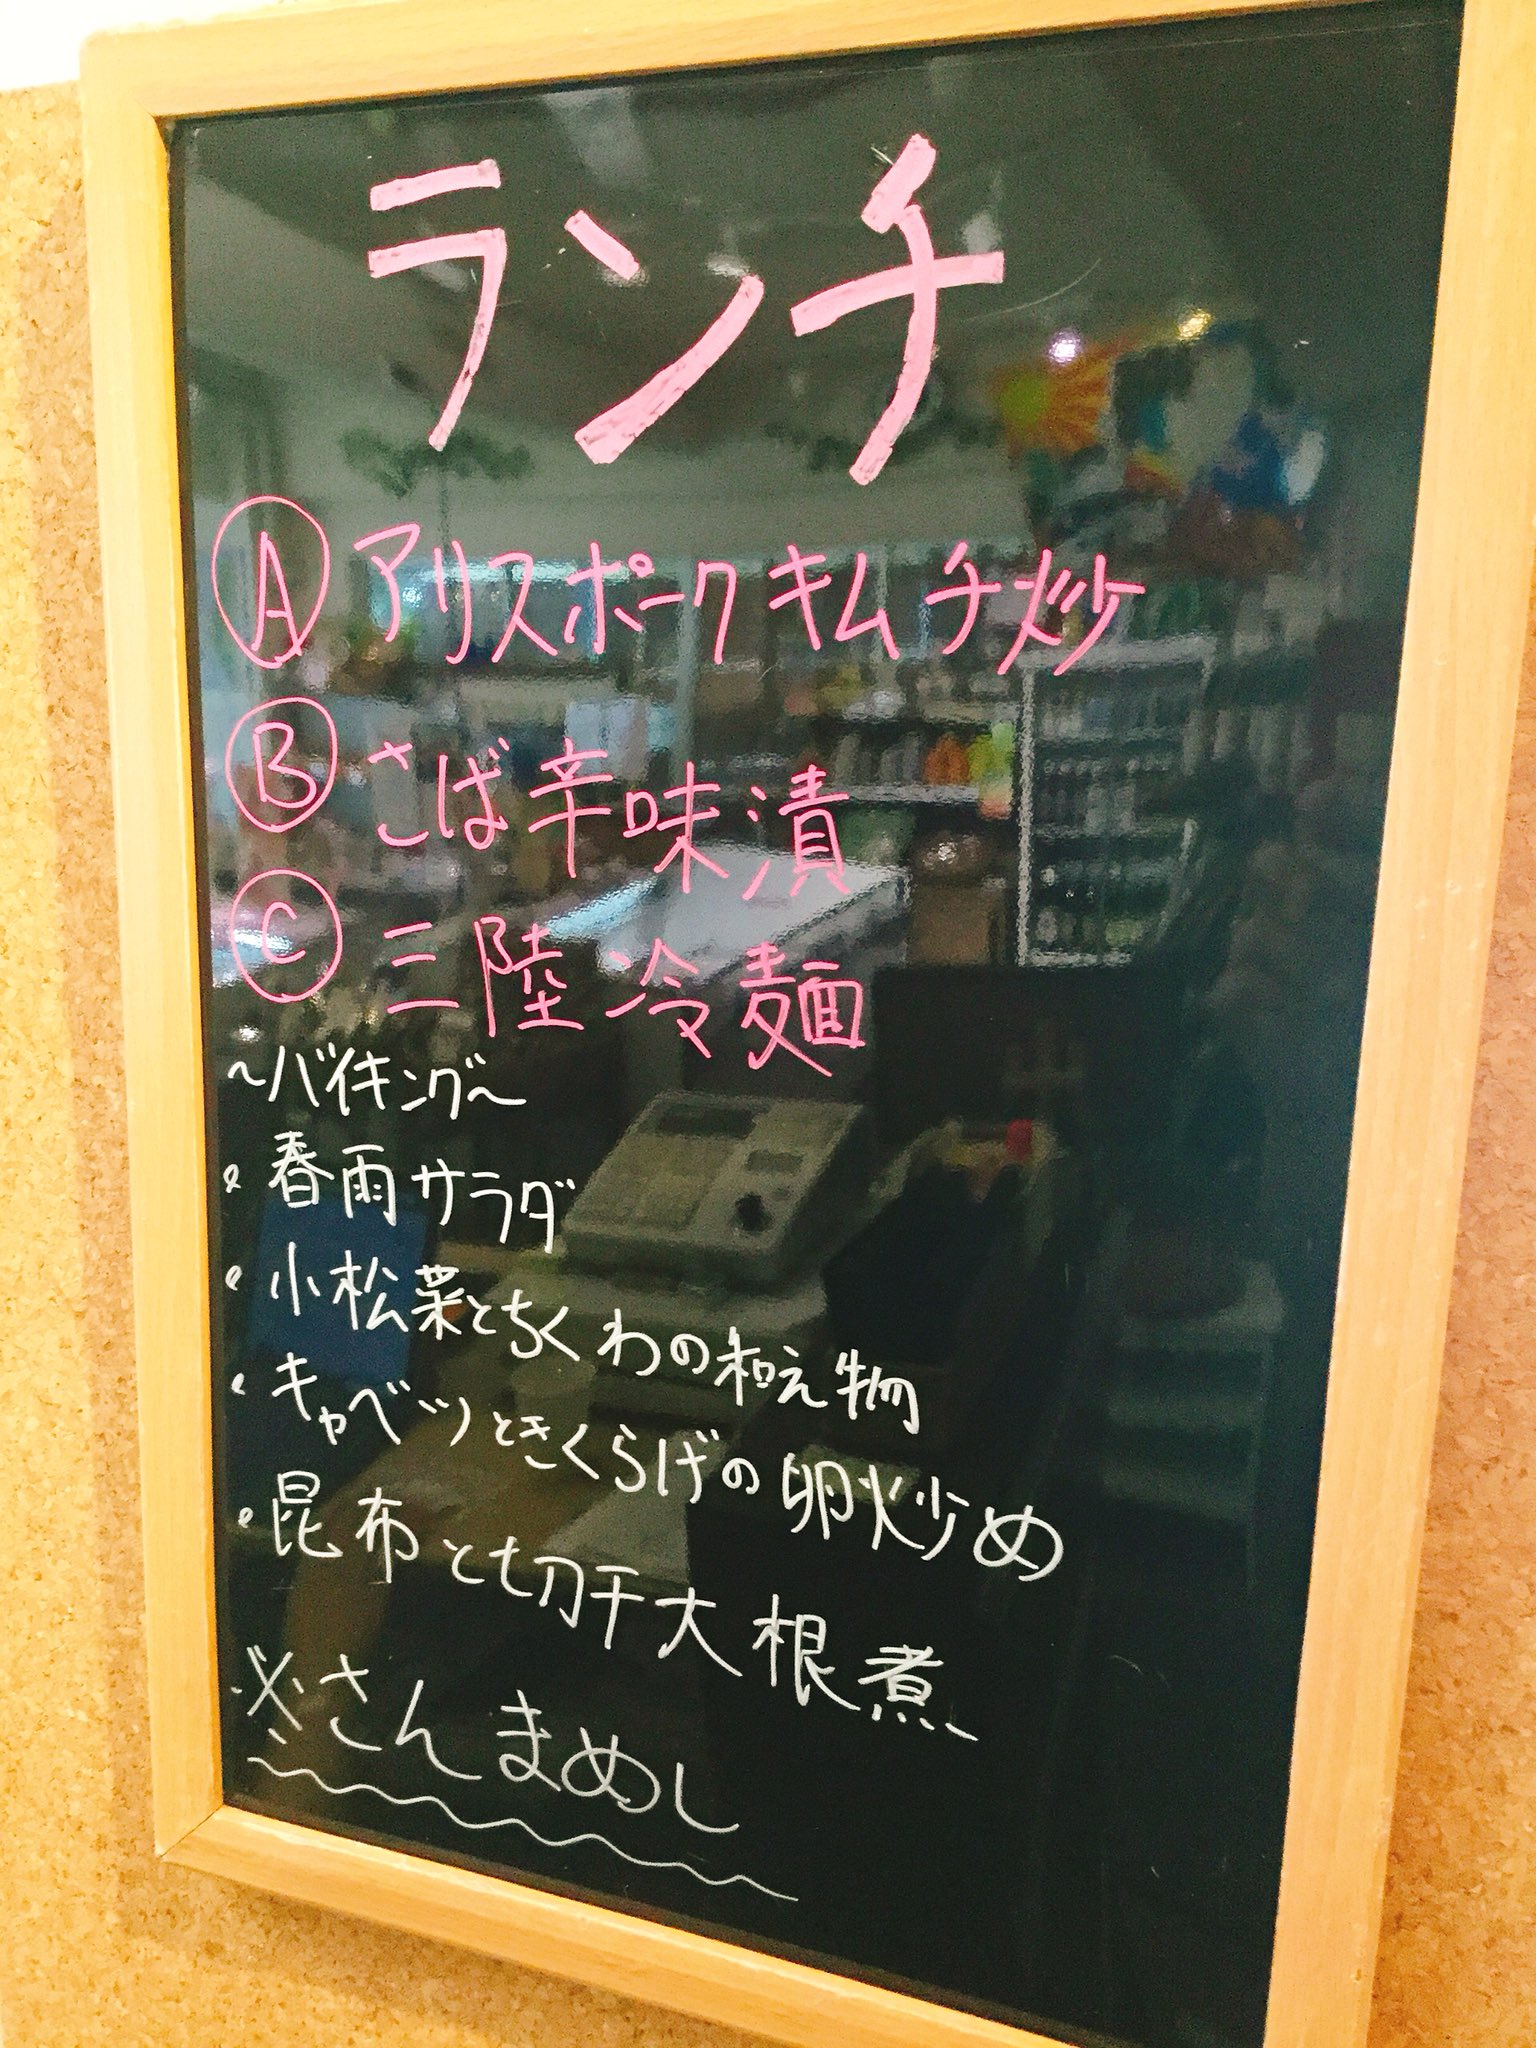 ランチ
Ⓐ アリスポークキムチ炒
Ⓑ さば辛味漬
Ⓒ 三陸冷麺
～バイキング～
・春雨サラダ
・小松菜とちくわの和え物
・キャベツときくらげの卵炒め
・昆布と切干大根煮
※さんまめし